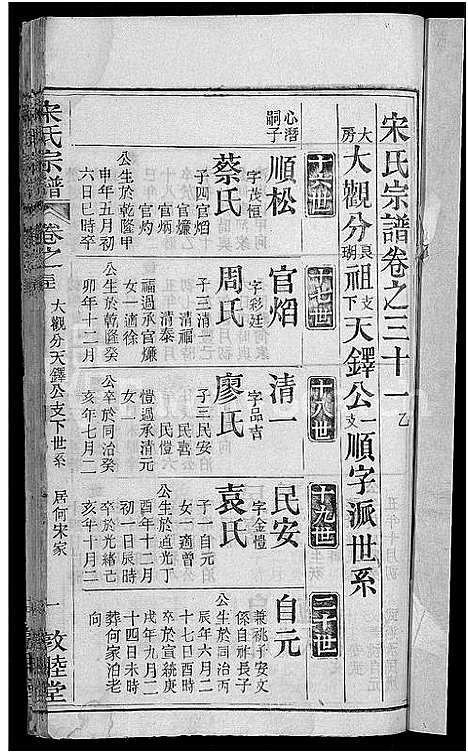 宋氏宗譜卷之三十一乙
大房大觀分良瑚祖支下天鐸公一支順字派世系
十六世
十七世
十八世
十九世
二十世
心潛嗣子
順松
字茂恒
蔡氏
子四官熖
官爀
官燫
官灼
公生於乾隆甲
申年五月初
六日巳時卒
官熖
字彩廷
周氏
子三清一
清福
清泰
福過承官燫
女一適徐
公生於乾隆癸
卯年十二月
清一
字品吉
廖氏
子三民安
民喜
民愷
愷過承清元
女一
公卒於同治癸
亥年七月二
民安
字金愷
袁氏
子一自元
女一適曾
公生於道光丁
酉年十二月
初一日辰時
卒於光緒己
亥年十月二
自元
兼祧子安文
係自祥長子
公生於同治丙
辰年六月二
十七日酉時
卒於宣統庚
戌年九月二
十四日未時
葬何家泊老
向
宋氏宗譜
卷之三十一
大觀分天鐸公支下世系
居何宋家
一
敦睦堂